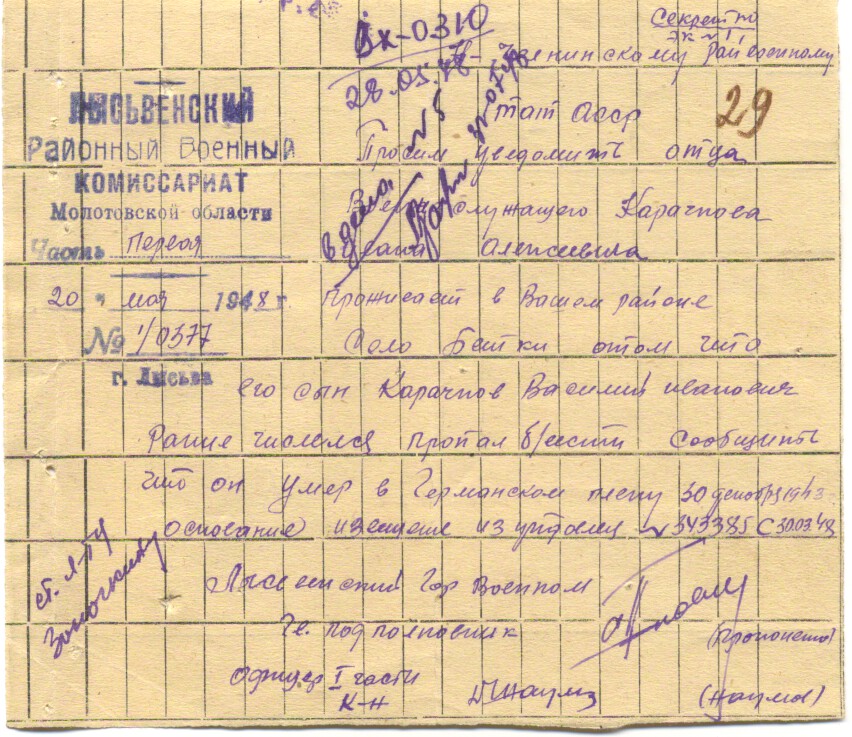 Вх-0310
28.05.48
Секретно
экз №1
Ленинскому райвоенкому
29
тат АССР
ЛЫСЬВЕНСКИЙ
Районный Военный
КОМИССАРИАТ
Молотовской области
Часть первая
20 " мая 1948 г.
№ 1/0377
г. Лысьва
Просим уведомить отца
Военнослужащего Карачкова
Ивана Алексеевича
Проживает в Вашем районе
Село Бетки отом что
его сын Карачков Василий иванович
Ранее числился пропал б/вести сообщить
что он умер в Германском плену 30 декабря 1943
основание извещение из упр №543385 с 30.03.48
Лысвенский Гор Военком
Гв. подполковник
Офицер I части
К-н
(Наумов)
в дело №5
ст. л-ту